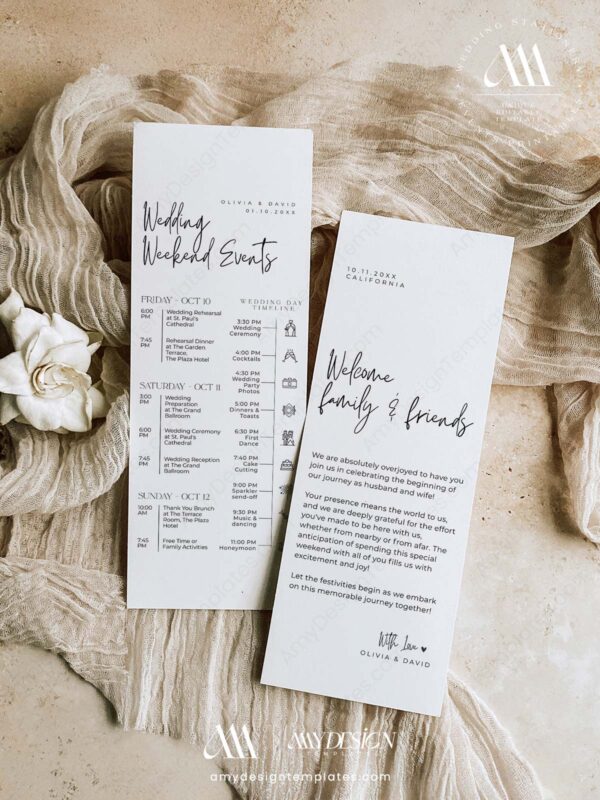 AM
OLIVIA & DAVID
01.10.20XX
Wedding
Weekend Events
FRIDAY - OCT 10
6:00
PM
Wedding Rehearsal
at St. Paul's
Cathedral
7:45
PM
Rehearsal Dinner
at The Garden
Terrace,
The Plaza Hotel
SATURDAY - OCT 11
3:00
PM
Wedding
Preparation
at The Grand
Ballroom
6:00
PM
Wedding Ceremony
at St. Paul's
Cathedral
7:45
PM
Wedding Reception
at The Grand
Ballroom
SUNDAY - OCT 12
10:00
AM
Thank You Brunch
at The Terrace
Room, The Plaza
Hotel
7:45
PM
Free Time or
Family Activities
WEDDING DAY
TIMELINE
3:30 PM
Wedding
Ceremony
4:00 PM
Cocktails
4:30 PM
Wedding
Party
Photos
5:00 PM
Dinners &
Toasts
6:30 PM
First
Dance
7:40 PM
Cake
Cutting
9:00 PM
Sparkler
send-off
9:30 PM
Music &
dancing
11:00 PM
Honeymoon
10.11.20XX
CALIFORNIA
Welcome
family & friends
We are absolutely overjoyed to have you
join us in celebrating the beginning of
our journey as husband and wife!
Your presence means the world to us,
and we are deeply grateful for the effort
you've made to be here with us,
whether from nearby or from afar. The
anticipation of spending this special
weekend with all of you fills us with
excitement and joy!
Let the festivities begin as we embark
on this memorable journey together!
With Love
OLIVIA & DAVID
AM
AMYDESIGN
TEMPLATES
amydesigntemplates.com